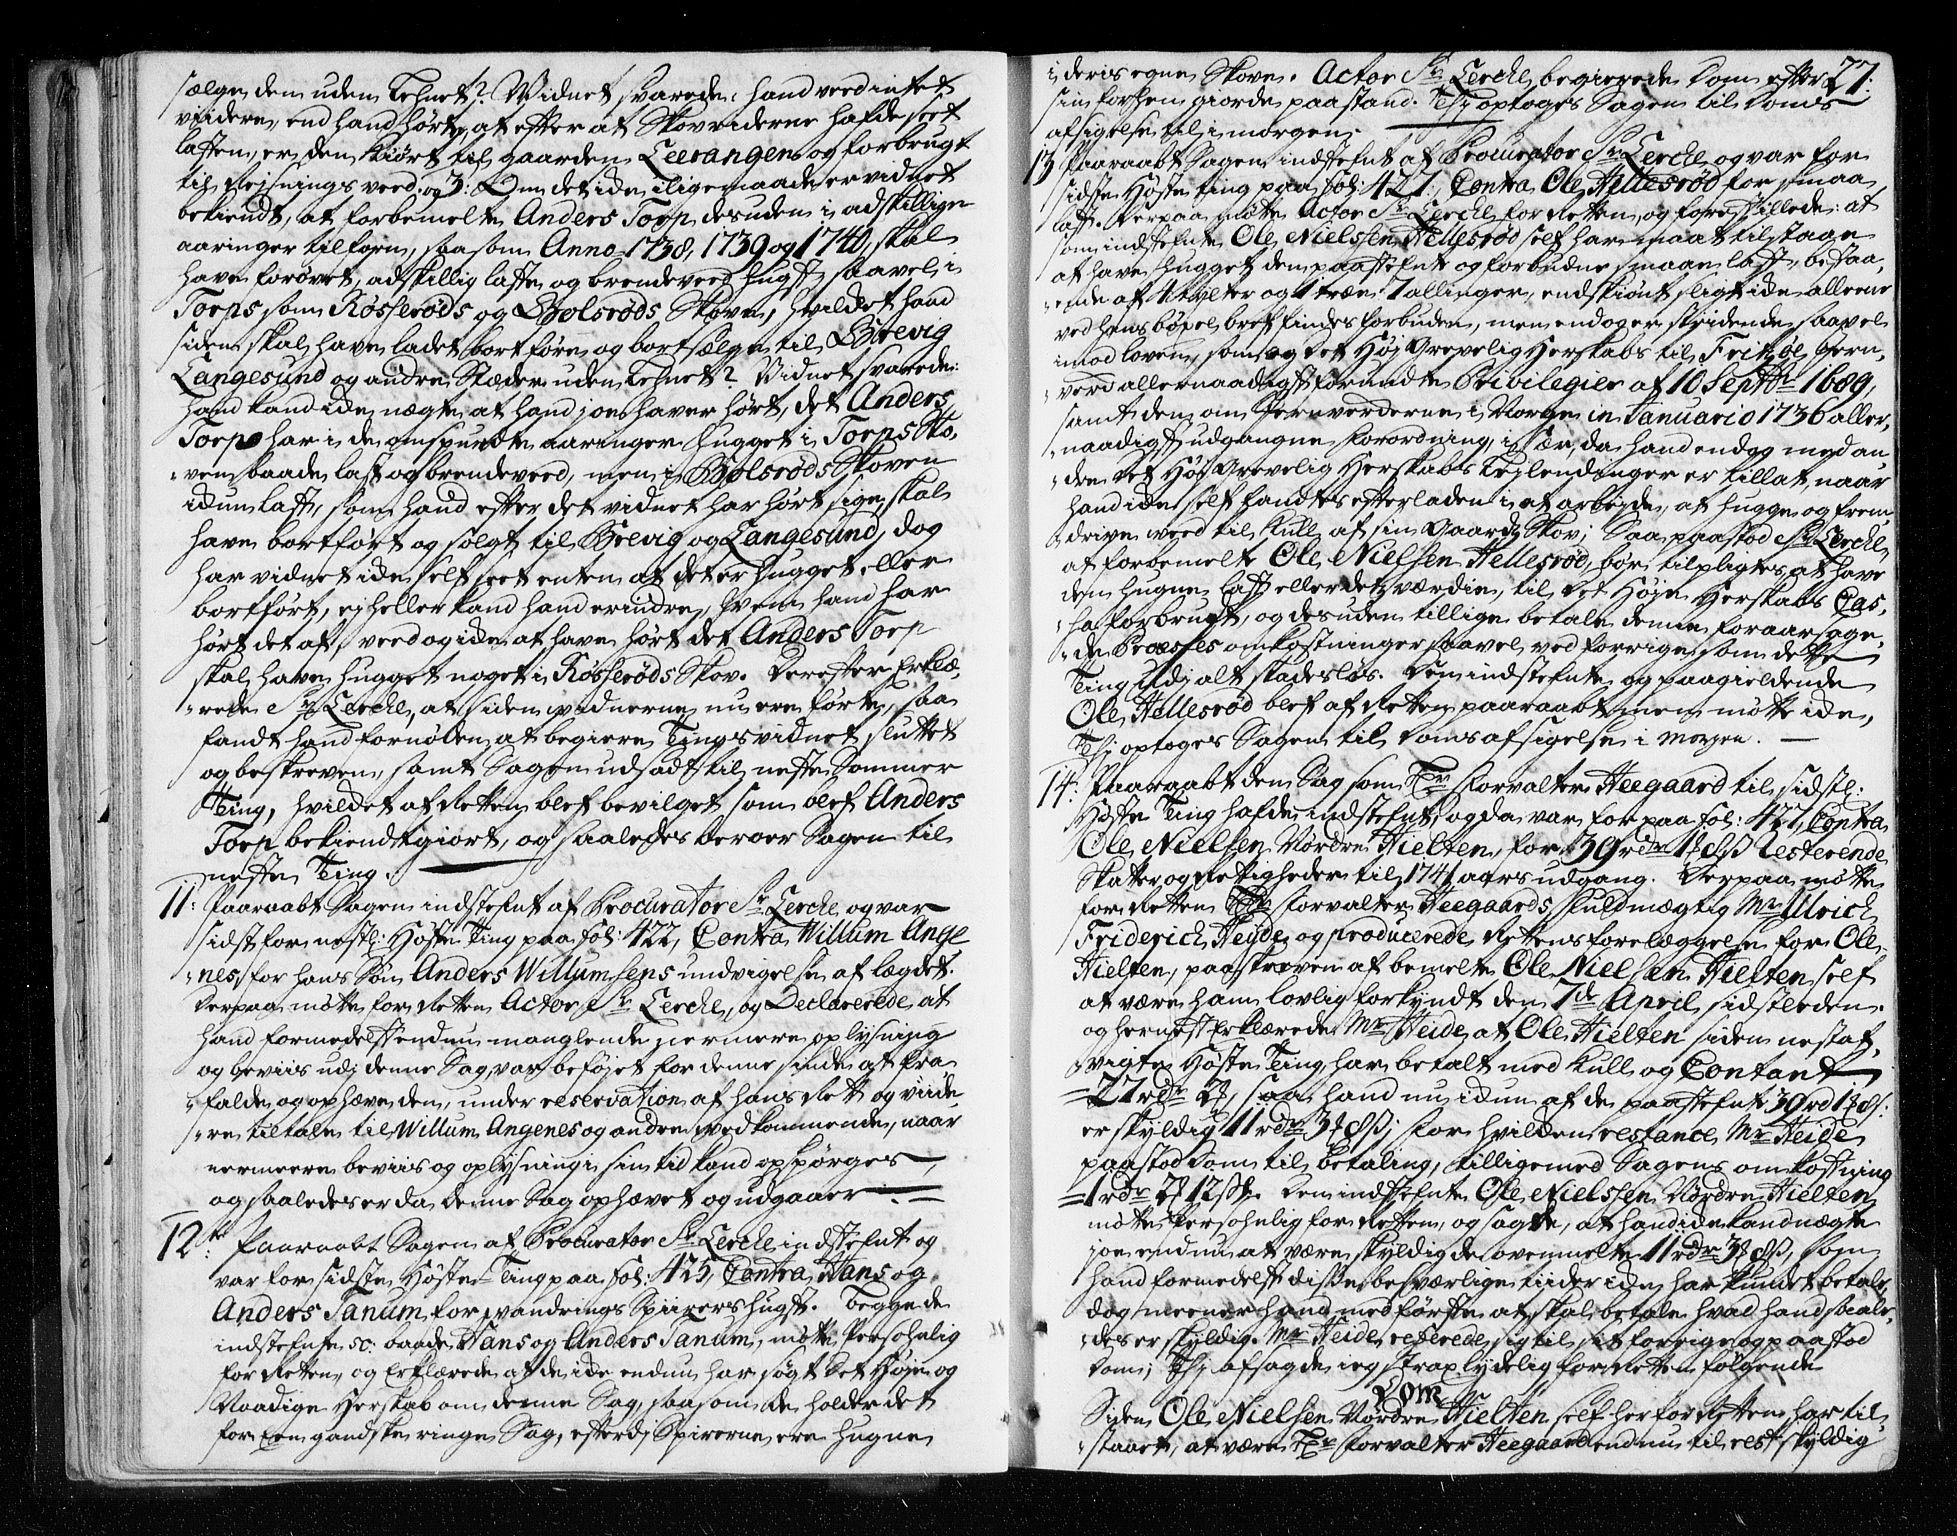 sælge dem uden Tehnet? Vidnet svarede: hand veed intet
viidere, end hand hørte, at efter at Skovriderne hafde seet
lasten, er den kiørt til gaarden Leerangen og forbrugt
til Reisnings veed. og 3: Om det ide iligemaade er vidnet
bekiendt, at forbemelte Anders Torp desuden i adskillige
aaringer tilforn, saasom Anno 1738, 1739 og 1740, skal
have forøvet, adskillig laste og brendeveed hugst, saavel i
Torps, som Røsserøds og Bolsrøds Skove, hvildet hand
siden skal have ladet bortføre og bortsælge til Brevig
Langesund og andre Stæder uden Tehnet? Vidnet svarede:
hand kand ide nægte, at hand joe haver hørt, det Anders
Torp har i de omspurdte aaringer hugget i Torps Sko-
-ven baade last og brendeveed, men i Bolsrøds Skoven
idun last, som hand efter det vidnet har hørt sige, skal
have bortført og solgt til Brevig og Langesund, dog
har vidnet ide self seet enten at det er hugget eller
bortført, ej heller kand hand erindre, hvem hand har
hørt det af, veed og ide at have hørt det Anders Torp
skal have hugget noget i Røsserøds Skov. Derefter Erklæ-
-rede Sr Lerche, at siden widnerne nu ere førte, saa
fandt hand fornøden, at begiere Tingsvidnet sluttet
og beskreven, samt Sagen udsadt til neste Sommer
Ting, hvildet af Retten blef bevilget som blef Anders
Torp bekiendtgiort, og saaledes beroer Sagen til
neste Ting.
11: Paaraabt Sagen indstefnt af Procurator Sr Lerche og var
sidst for nestl: Høste Ting paa fol: 422, Contra Willum Ange
-nes, for hans Søn Anders Willumsens undvigelse af lægdet.
Derpaa møtte for Retten Actor Sr Lerche, og Declarerede, at
hand formedelst endnu manglende nermere oplysning
og beviis udj denne Sag, var beføjet for denne sinde at fra-
-falde og ophæve den, under reservation af hans Rett og viide
-re tiltale til Willum Angenes og andre vedkommende, naar
nermeere beviis og oplysning i sin tid kand opspørges,
og saaledes er da denne Sag ophævet og udgaaer.
12te: Paaraabt Sagen af Procurator Sr Lerche indstefnt og
var for sidste Høste-Ting paa fol: 425, Contra Hans og
Anders Tanum for vandrings Spiirers hugst. Begge de
indstefnte sc: baade Hans og Anders Tanum, møtte Persohnlig
for Retten, og Erklærede at de ide endnu har søgt Det Høje og
Naadige Herskab om denne Sag, saasom de holder det
for een gandske ringe Sag, efterdj Spirerne ere hugne
27:
i deris egne Skove. Actor Sr Lerche begierede Dom efter
sin forhen giorde paastand. Thj optoges Sagen til Doms
afsigelse til i morgen.
13 Paaraabt Sagen indstefnt af Procurator Sr Lerche og var for
sidste Høste ting paa fol: 427, Contra Ole Hellesrød for smaa
last. Derpaa møtte Actor Sr Lerche for Retten, og forestillede: at
som indstefnte Ole Nielssen Hellesrød self har maat tilstaae
at have hugget den paastefnte og forbudne smaae last, bestaa-
-ende af 4 tylter og 1 træe 7allinger, endskiønt sligt ide alleene
ved hans bøxel bref findes forbuden, men endog er stridende saavel
imod loven, som og det Høj Grevelig Herskabs til Fritzøe Jern-
verd allernaadigst forundte Privilegier af 10 Septbr 1689,
samt den om Jernverderne i Norge in Januario 1736 aller-
-naadigst udgangne forordning, i sær, da hand endog med an-
-dre det Høj Grevelig Herskabs Leylendinger er tillat, naar
hand ide self fandtes efterladen i at arbejde, at hugge og frem-
-drive veed til Kull af sin Gaards Skov; Saa paastod Sr Lerche
at forbemelte Ole Nielsen Hellesrød, bør tilpligtes at have
den hugne last eller dets værdie, til det Høje Herskabs Cas-
-ha forbrudt, og desuden tillige betale denne foraarsage-
-de Processes omkostninger saavel ved forrige, som dette
Ting udj alt skadesløs. Den indstefnte og paagieldende
Ole Hellesrød blef af Retten paaraabt men møtte ide,
Thj optoges Sagen til Doms afsigelse i morgen.
14: Paaraabt den Sag som Hr Forvalter Heegaard til sidstl:
Høste Ting hafde indstefnt, og da var for paa fol: 427, Contra
Ole Nielsen Nordre Hielten, for 39 rdr 1 8 s Resterende
Skatter og Rettigheder til 1741 aars udgang. Derpaa møtte
for Retten Hr Forvalter Heegaards fuldmægtig Mr Ulrich
Friderich Heyde, og producerede Rettens forelæggelse for Ole
Hielten, paaskreven af bemelte Ole Nielsen Hielten self
at være ham lovlig forkyndt den 7de April sidstleden.
og hernest Erklærede Mr Heide, at Ole Hielten siden nestaf-
-vigte Høste Ting har betalt med Kull og Contant
27 rdr 2, saa hand nu idun af de paastefnte 39 rd 1 8 s:
er skyldig 11 rdr 3 8 s; for hvilken restance Mr Heide
paastod Dom til betaling, tilligemed Sagens omkostning
1 rdr 2 12 s. Den indstefnte Ole Nielssen Nordre Hielten
møtte Persohnlig for Retten, og sagde, at hand ide kand nægte
joe endnu at være skyldig de ovenmelte 11 rdr 3 8 s, som
hand formedelst disse besværlige tiider ide har kundet betale,
dog meener hand med første at skal betale hvad hand saale-
-des er skyldig. Mr Heide refererede sig til sit forrige og paastod
Dom; Thj afsagde ieg strax lydelig for Retten følgende
Dom
Siden Ole Nielsen Nordre Hielten self her for Retten har til-
-staaet, at være Hr Forvalter Heegaard endnu til rest skyldig